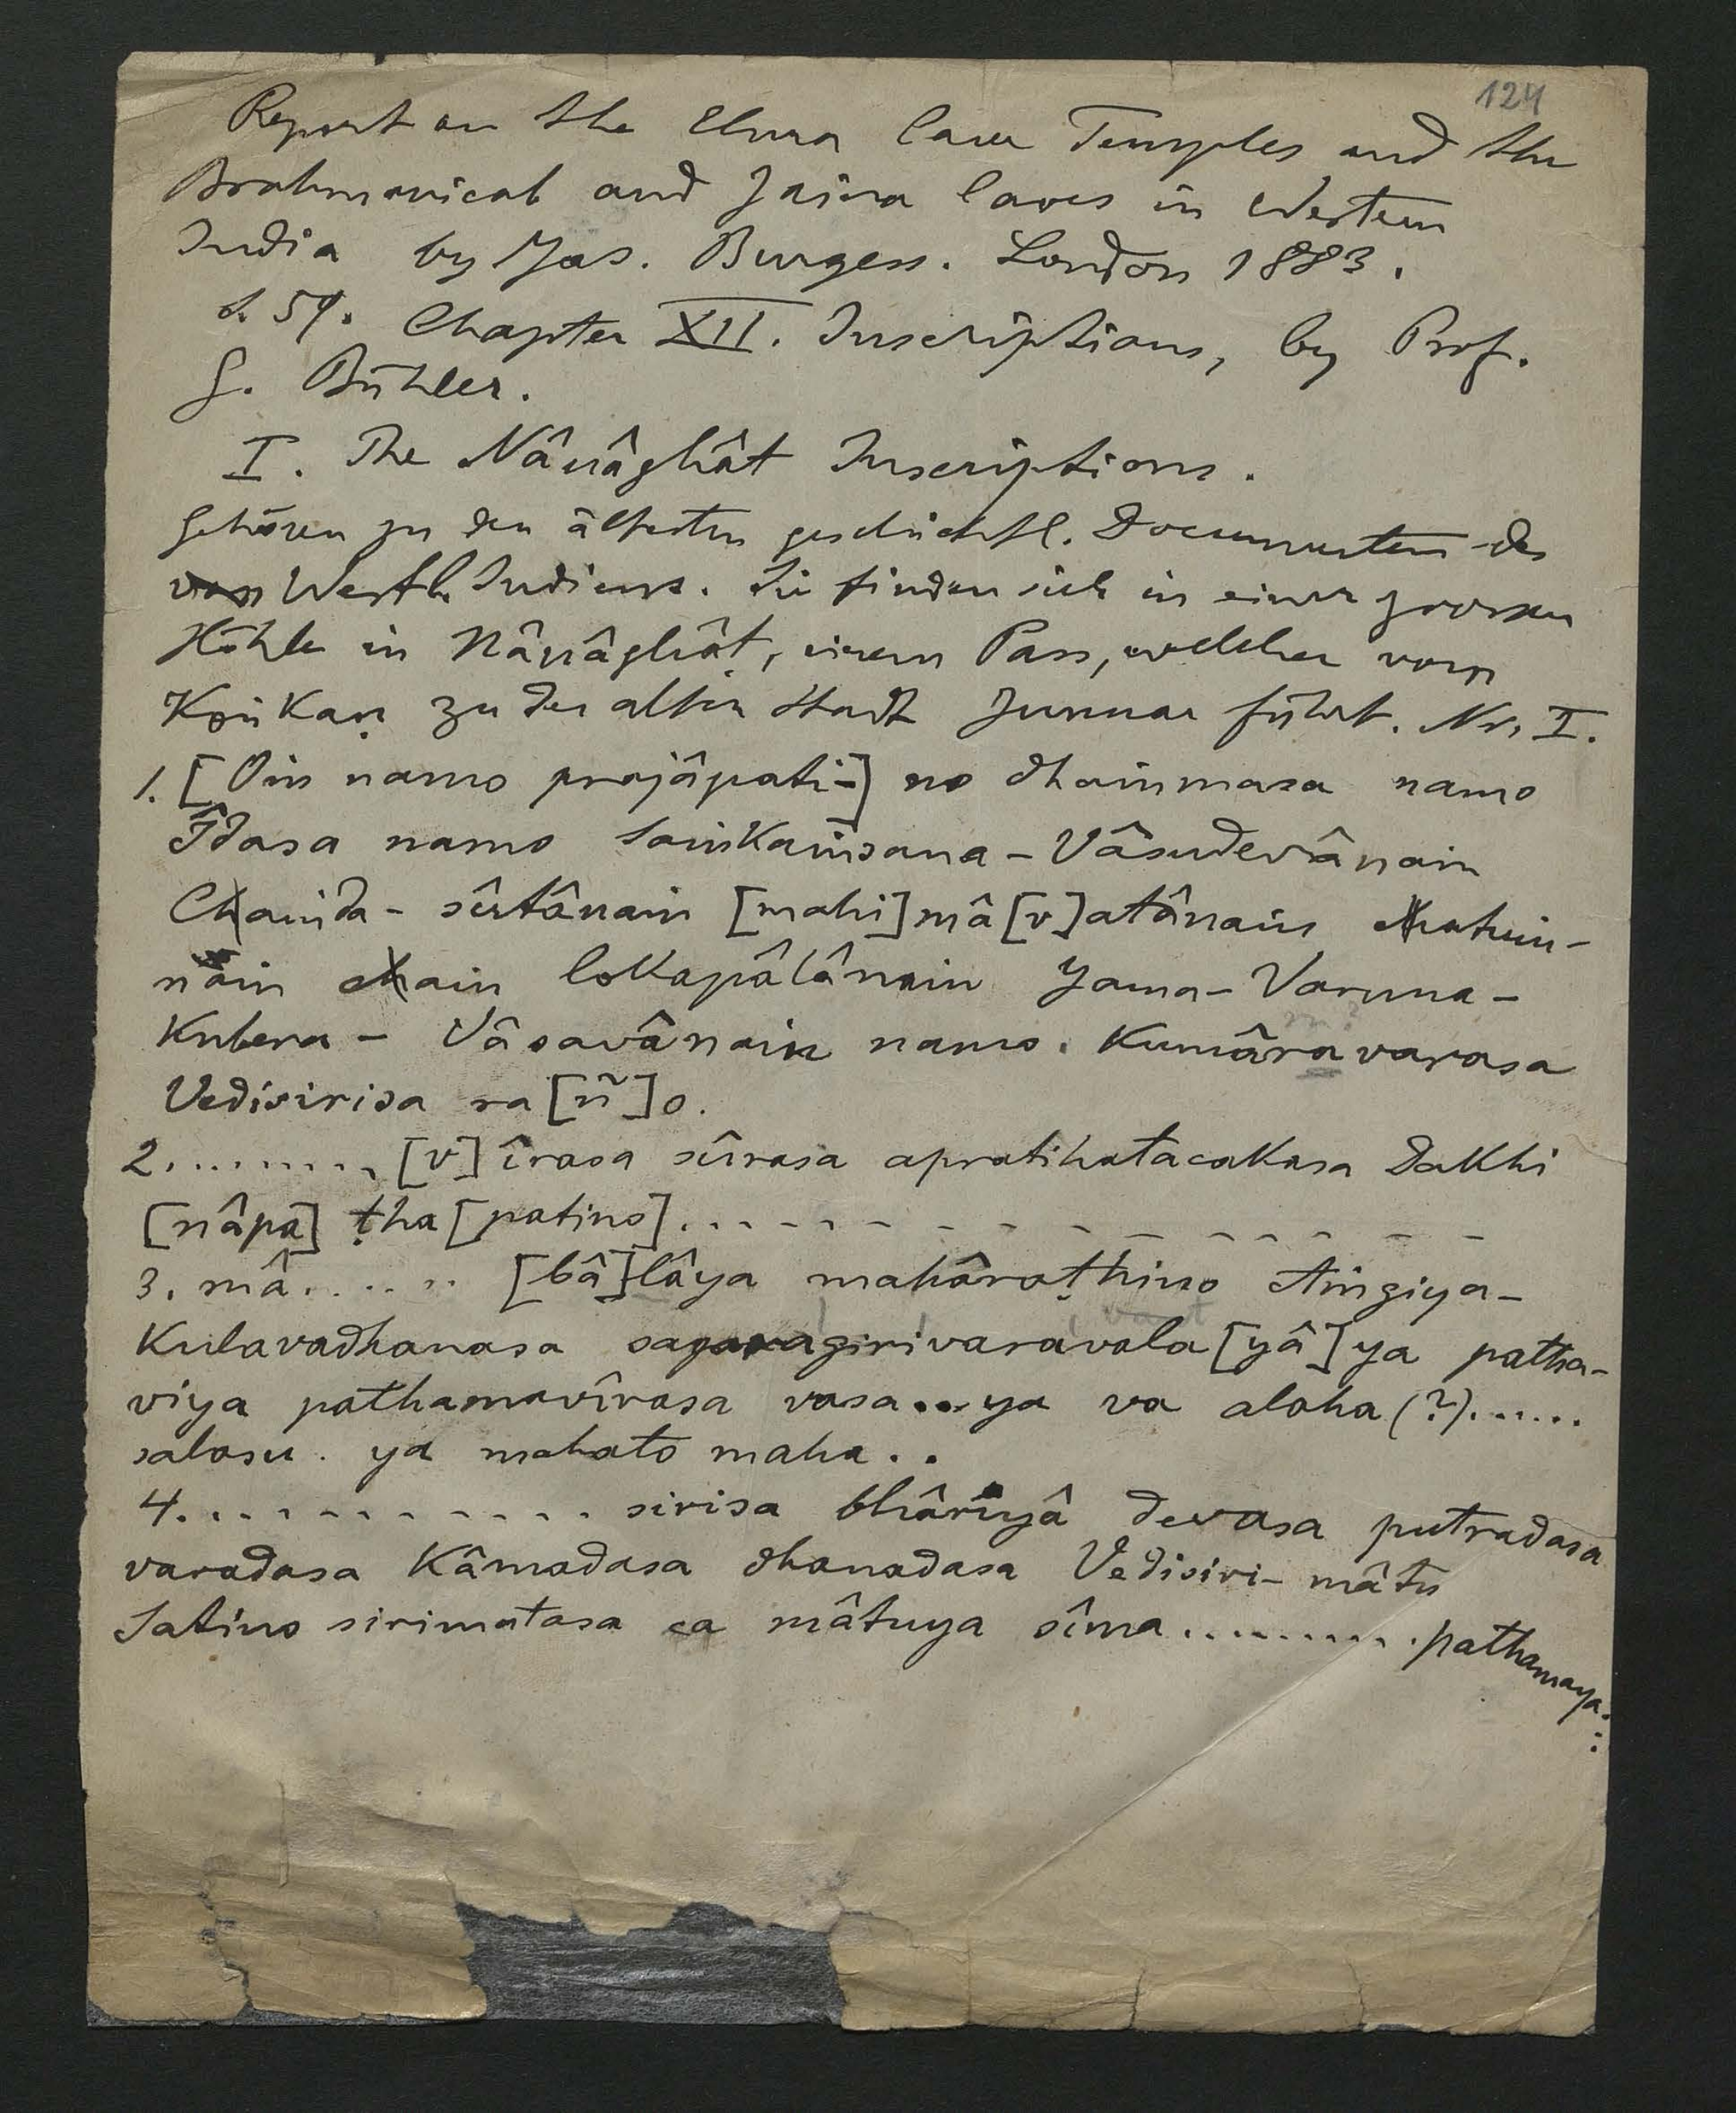 124
Report on the Elura Cave Temples and the
Brahmanical and Jaina Caves in Western
India by Jas. Burgess. London 1883.
S. 59. Chapter XII. Inscriptions, by Prof.
G. Bühler.
I. The Nânâghât Inscriptions.
Gehören zu den ältesten geschichtl. Documenten des
von Westl. Indiens. Sie finden sich in einer grossen
Höhle in Nânâghât, einem Pass, welcher vom
Konkaṇ zu der alten Stadt Junnar führt. Nr. I.
1. [Oṁ namo prajâpati-] no dhaṁmasa namo
Îdasa namo Saṁkaṁsana-Vâsudevânaṁ
Chaṁda-sûtânaṁ [mahi]mâ[v]atânaṁ chatuṁ-
naṁ chaṁ lokapâlânaṁ Yama-Varuna-
Kubera-Vâsavânaṁ namo. Kumâravarasa
Vedisirisa ra[ñ]o.
2.......... [v]îrasa sûrasa apratihatacakasa Dakhi
[nâpa]ṭha[patino]..............
3. mâ...... [bâ]lâya mahâraṭhino Aṁgiya-
kulavadhanasa sagaragirivaravala[yâ]ya patha-
viya pathamavîrasa vasa..ya va alaha (?)......
salasu. ya mahato maha..
4............ sirisa bhâriyâ devasa putradasa
varadasa Kâmadasa dhanadasa Vedisiri-mâtu
Satino sirimatasa ca mâtuya sîma.......... pathamaya..: